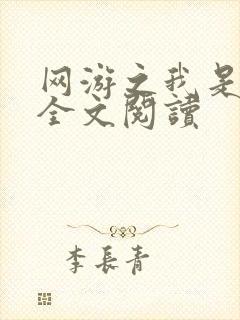 网游之我是
全文閱讀
李長青